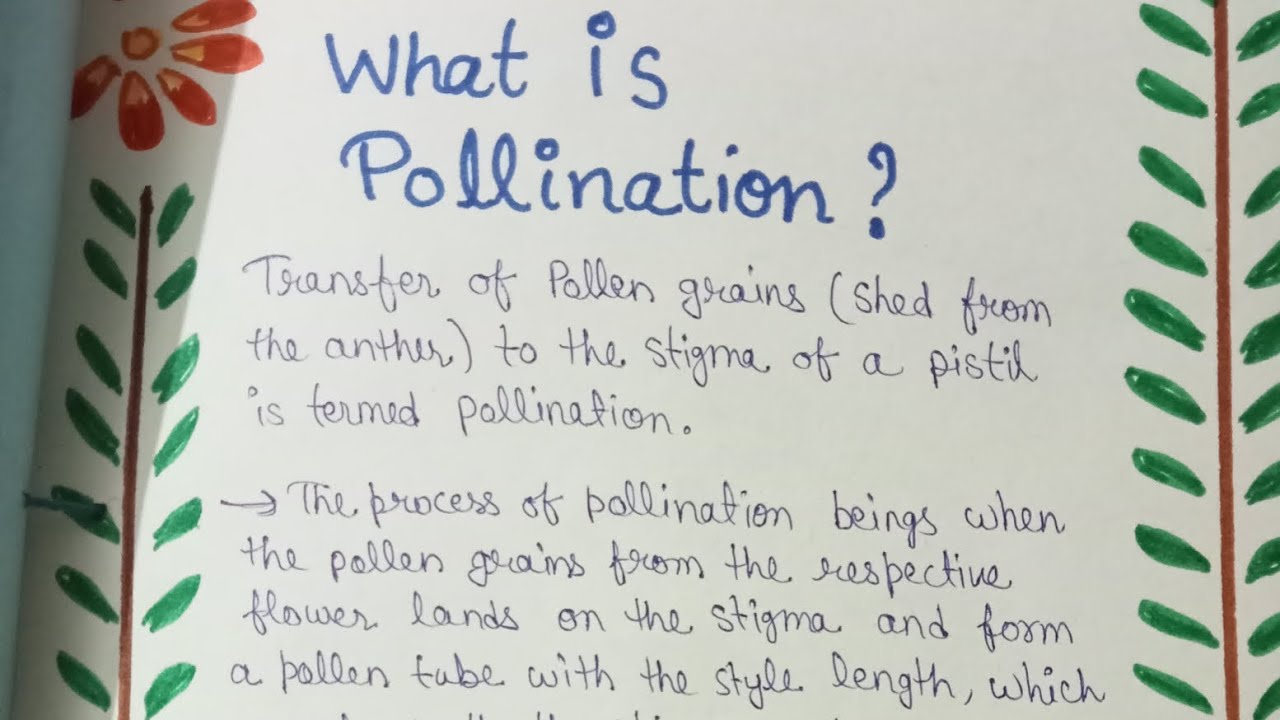 What is
Pollination?
Transfer of Pollen grains (shed from
the anther) to the stigma of a pistil
is termed pollination.
→ The process of pollination beings when
the pollen grains from the respective
flower lands on the stigma and form
a pollen tube with the style length, which